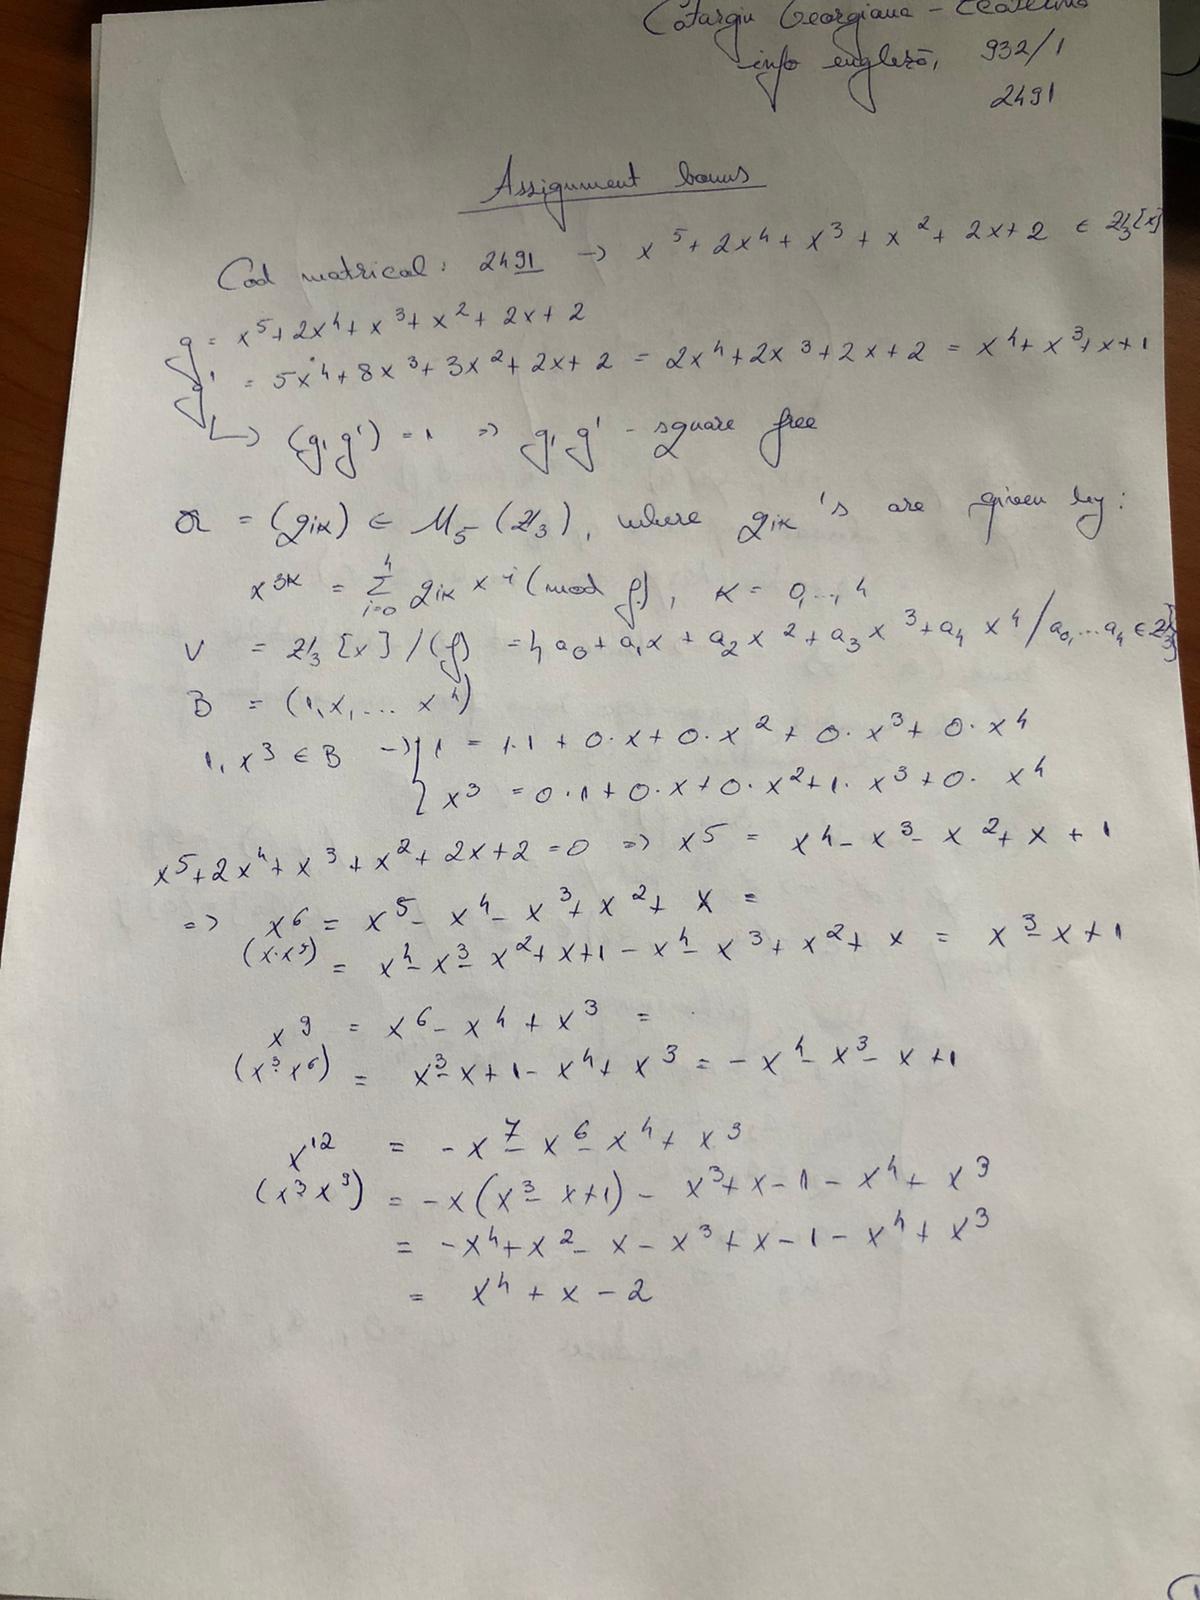 Catargiu Georgiana - Ecaterina
info engleză, 932/1
2491
Assignment bonus
Cod matricol: 2491 → x^5 + 2x^4 + x^3 + x^2 + 2x + 2 ∈ ℤ_3[x]
g = x^5 + 2x^4 + x^3 + x^2 + 2x + 2
g' = 5x^4 + 8x^3 + 3x^2 + 2x + 2 = 2x^4 + 2x^3 + 2x + 2 = x^4 + x^3 + x + 1
↳ (g, g') = 1 ⇒ g, g' - square free
Q = (q_ik) ∈ M_5 (ℤ_3), where q_ik's are given by:
x^3k = Σ_{i=0}^{4} q_ik x^i (mod f), k = 0,..., 4
V = ℤ_3 [x] / (f) = { a_0 + a_1x + a_2x^2 + a_3x^3 + a_4x^4 / a_0,...a_4 ∈ ℤ_3}
B = (1, x, ... x^4)
1, x^3 ∈ B → { 1 = 1·1 + 0·x + 0·x^2 + 0·x^3 + 0·x^4
x^3 = 0·1 + 0·x + 0·x^2 + 1·x^3 + 0·x^4
x^5 + 2x^4 + x^3 + x^2 + 2x + 2 = 0 ⇒ x^5 = x^4 - x^3 - x^2 + x + 1
⇒ x^6 = x^5 - x^4 - x^3 + x^2 + x =
(x·x^5) = x^4 - x^3 - x^2 + x + 1 - x^4 - x^3 + x^2 + x = x^3 - x + 1
x^9 = x^6 - x^4 + x^3 =
(x^3·x^6) = x^3 - x + 1 - x^4 + x^3 = - x^4 - x^3 - x + 1
x^12 = - x^7 - x^6 - x^4 + x^3
(x^3 x^9) = - x(x^3 - x + 1) - x^3 + x - 1 - x^4 + x^3
= - x^4 + x^2 - x - x^3 + x - 1 - x^4 + x^3
= x^4 + x - 2
1